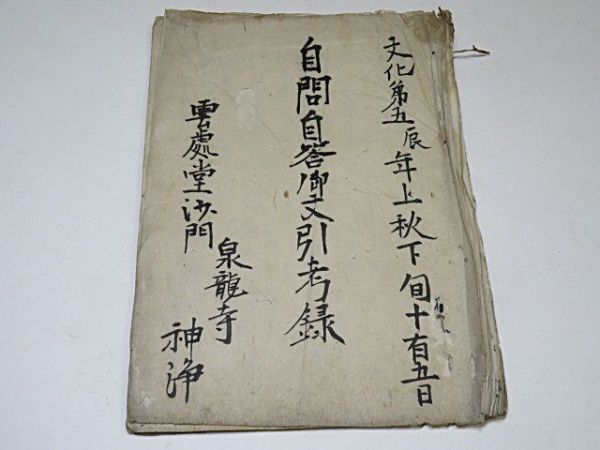 文化第五辰年上秋下旬十有五日
自問自答御文引考録
雲處堂沙門
泉龍寺
神浄